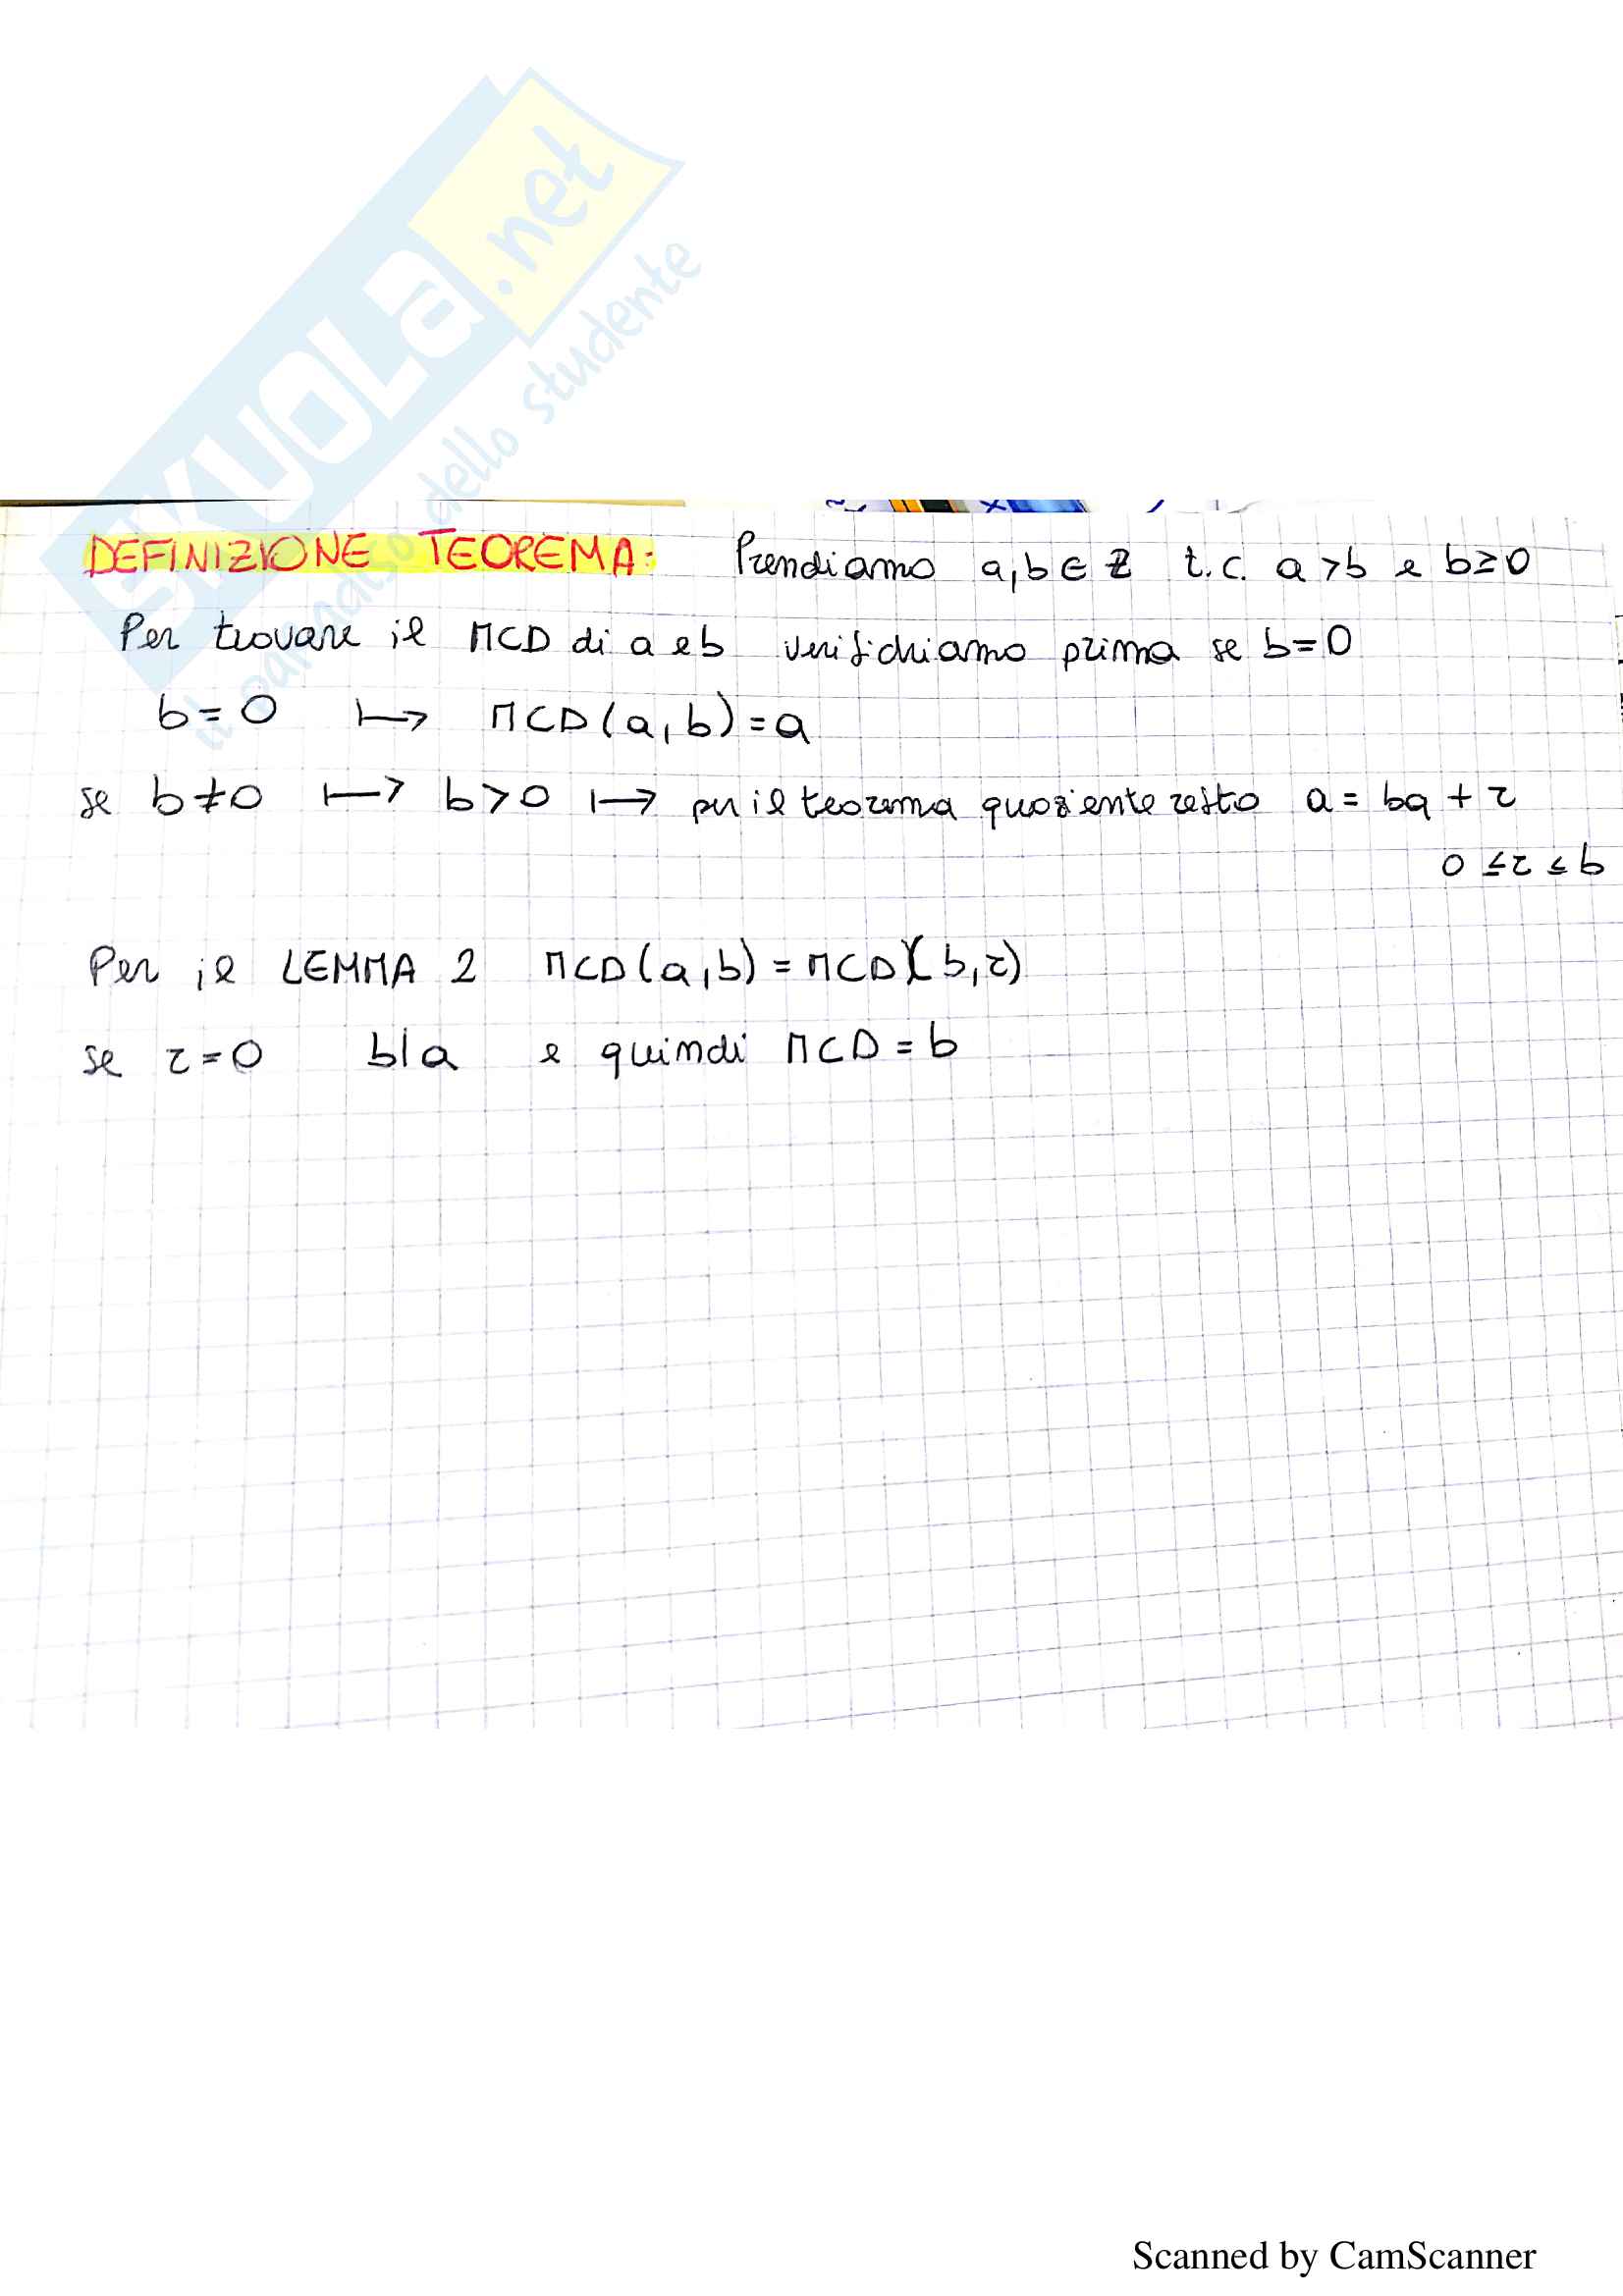 SKUOLA.net
il paradiso dello studente
DEFINIZIONE TEOREMA: Prendiamo a,b ∈ Z t.c. a>b e b≥0
Per trovare il MCD di a e b verifichiamo prima se b=0
b=0 ↦ MCD(a,b)=a
se b≠0 ↦ b>0 ↦ per il teorema quoziente resto a = bq + r
Per il LEMMA 2 MCD(a,b) = MCD(b,r)
se r=0 b|a e quindi MCD=b
Scanned by CamScanner